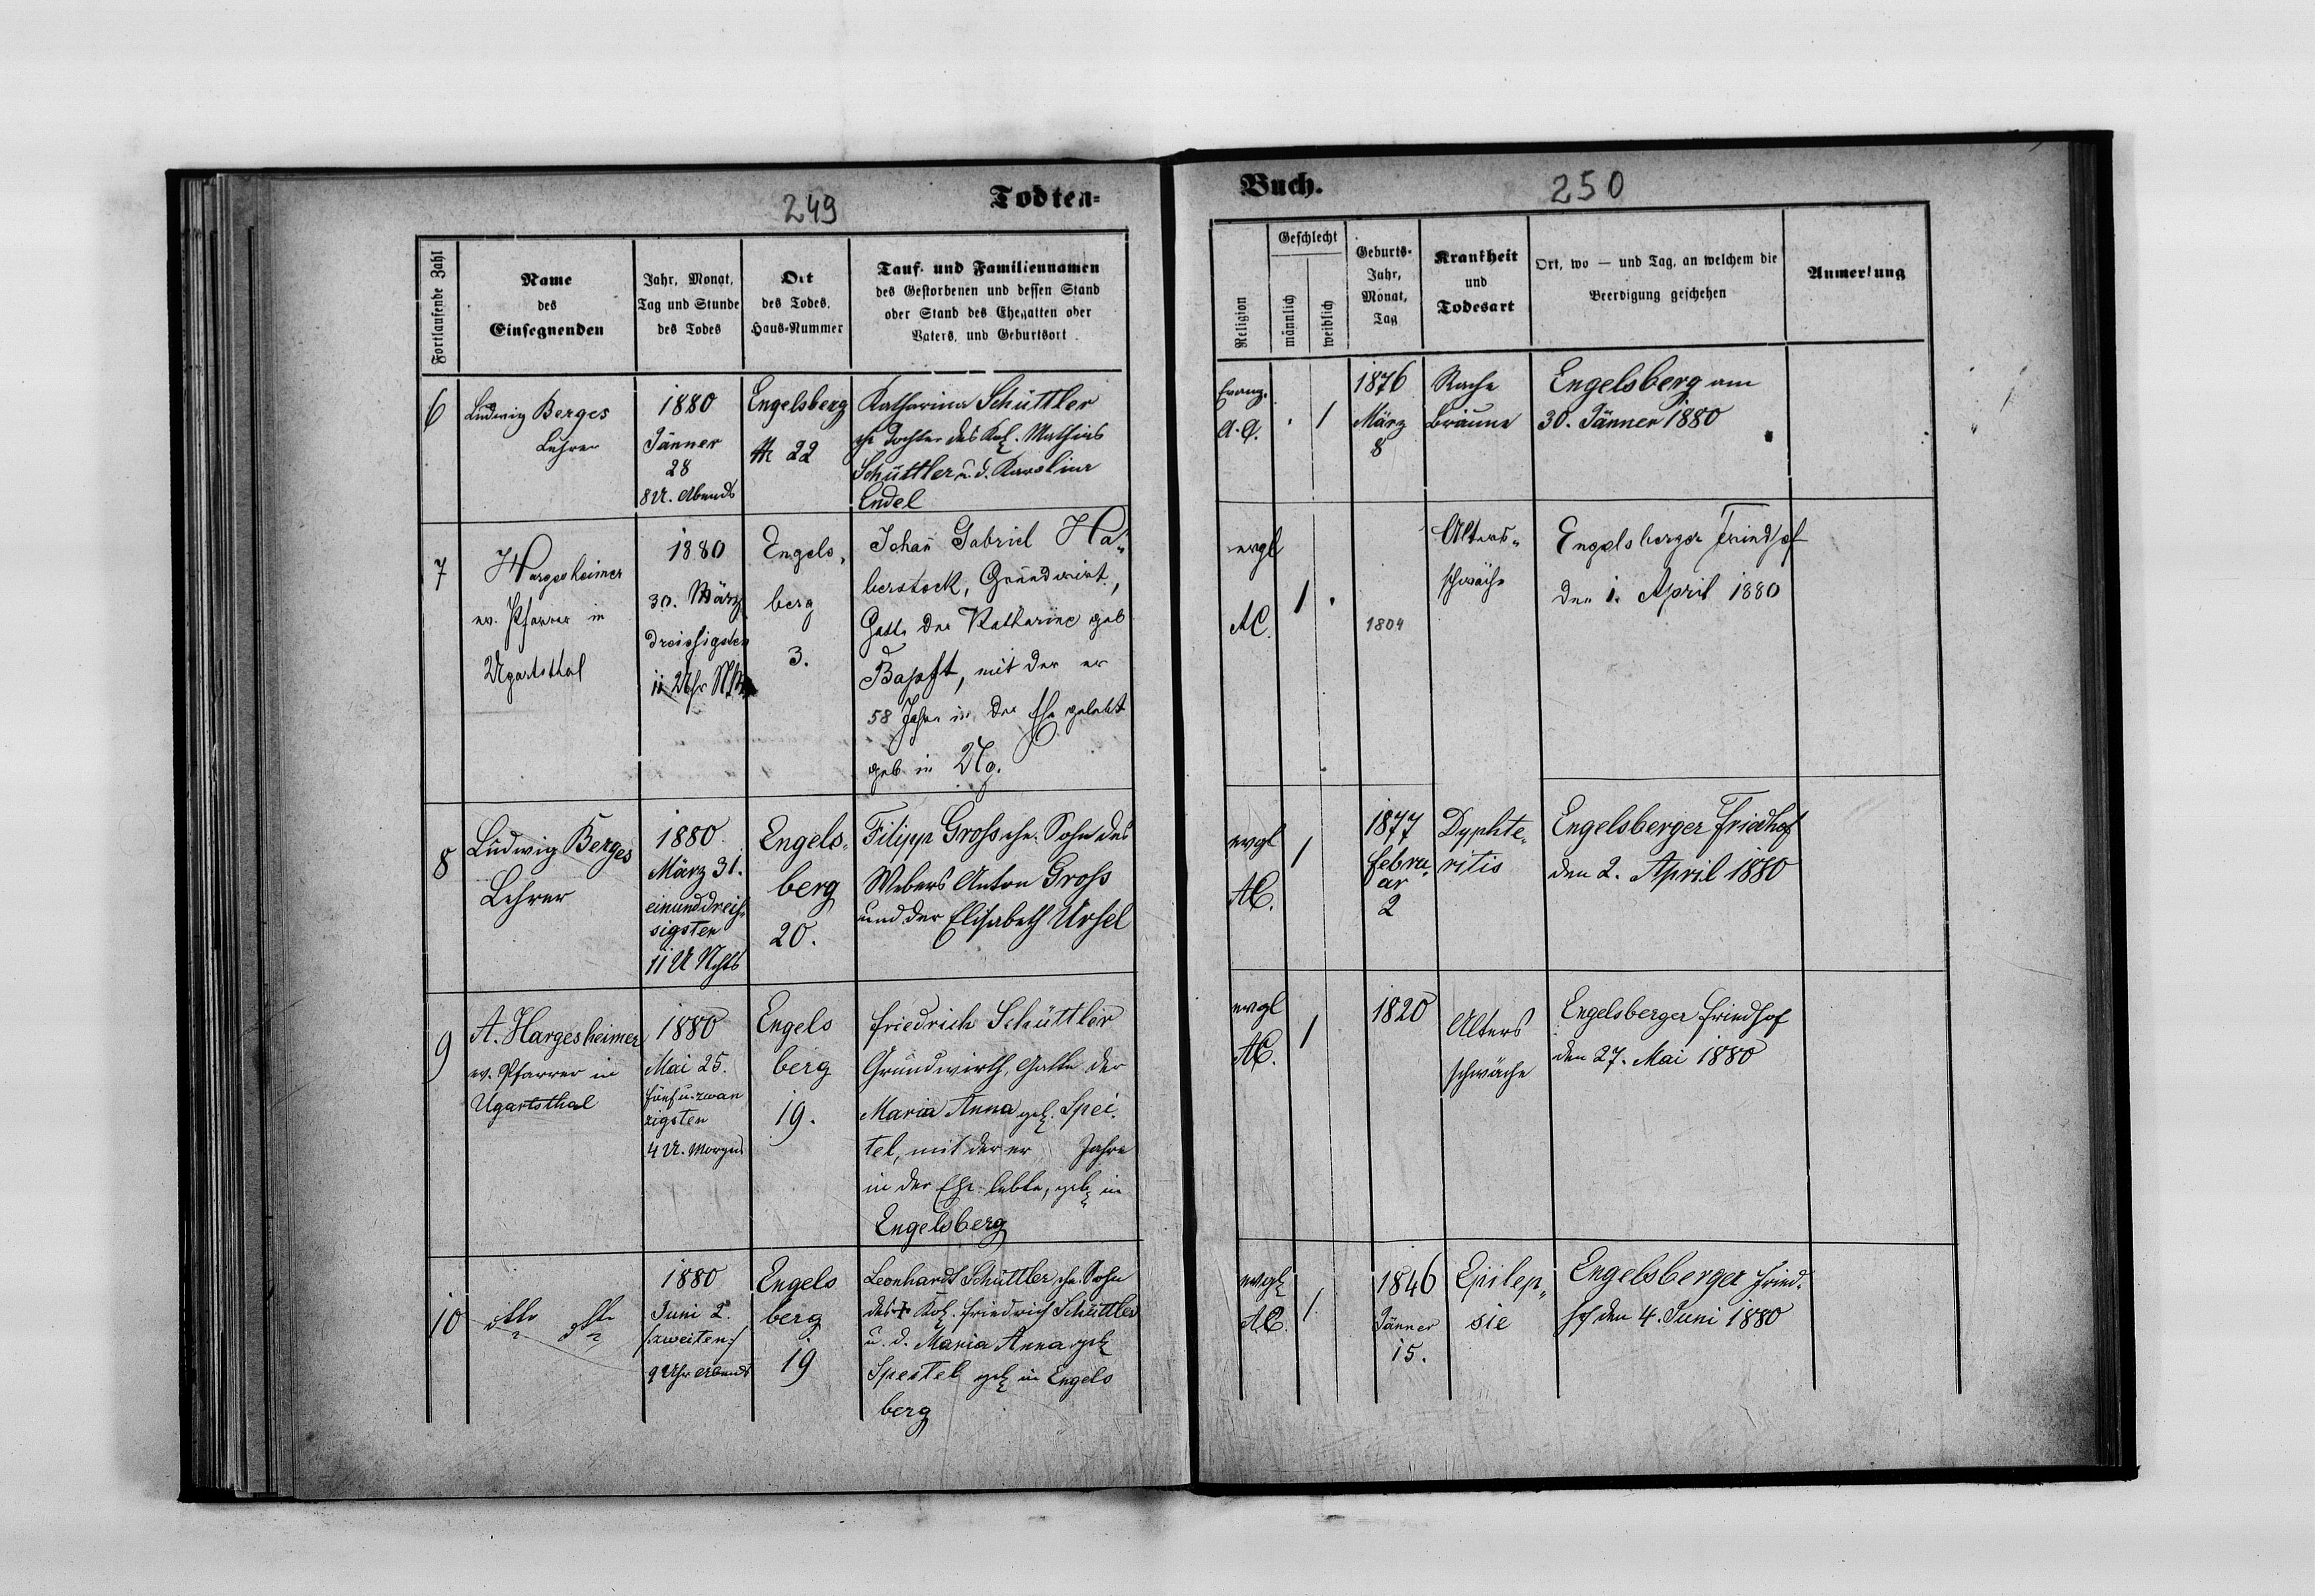 249
Todten-
Fortlaufende Zahl
Name
des
Einsegnenden
Jahr, Monat,
Tag und Stunde
des Todes
Ort
des Todes.
Haus-Nummer
Tauf- und Familiennamen
des Gestorbenen und dessen Stand
oder Stand des Ehegatten oder
Vaters, und Geburtsort
6
Ludwig Berges
Lehrer
1880
Jänner
28
8 U. Abends
Engelsberg
№ 22
Katharina Schüttler
eh Tochter des Kol. Mathias
Schüttler u. d. Karolina
Endel
7
Hargesheimer
ev. Pfarrer in
Ugartsthal
1880
30. März
dreissigsten
11 Uhr
Engels-
berg
3.
Johan̄ Gabriel Ha-
berstock, Grundwirt,
Gatte der Katharine geb
Bapst, mit der er
58 Jahre in der Ehe gelebt
geb in Ug.
8
Ludwig Berges
Lehrer
1880.
März 31.
einunddreis-
sigsten
11 U Nchts
Engels-
berg
20.
Filipp Gross ehe. Sohn des
Webers Anton Gross
und der Elisabeth Ursel
9
A. Hargesheimer
ev. Pfarrer in
Ugartsthal
1880
Mai 25.
fünf u. zwan
zigsten
4 U. Morgens
Engels
berg
19.
Friedrich Schüttler
Grundwirth, Gatte der
Maria Anna geb. Spei-
tel, mit der er Jahre
in der Ehe lebte, geb in
Engelsberg
10
dtto dtto
1880
Juni 2.
/:zweiten:/
9 Uhr Abends
Engels
berg
19
Leonhardt Schüttler, ehe. Sohn
des † Kol. Friedrich Schüttler
u. d. Maria Anna geb
Speitel geb in Engels
berg
Buch.
250
Religion
Geschlecht
männlich
weiblich
Geburts-
Jahr,
Monat,
Tag
Krankheit
und
Todesart
Ort, wo — und Tag, an welchem die
Beerdigung geschehen
Anmerkung
Evang.
A. C.
1
1876
März
8
Rachen
Bräune
Engelsberg am
30. Jänner 1880
evgl
AC.
1
1804
Alters-
schwäche
Engelsberger Friedhof
den 1. April 1880
evgl
AC.
1
1877
Febru-
ar
2
Dyphte-
ritis
Engelsberger Friedhof
den 2. April 1880
evgl
AC.
1
1820
Alters
schwäche
Engelsberger Friedhof
den 27. Mai 1880
evgl
AC.
1
1846
Jänner
15.
Epilep-
sie
Engelsberger Fried-
hof den 4. Juni 1880